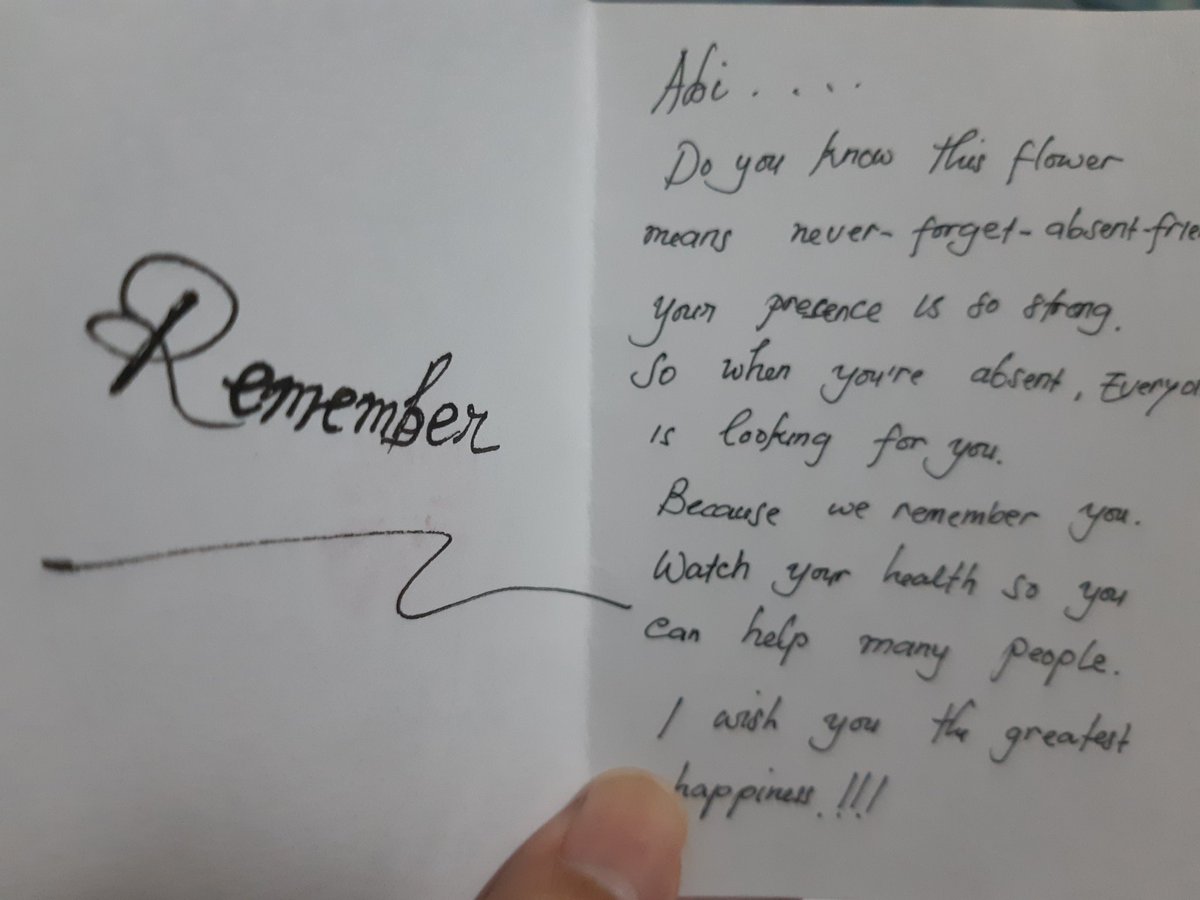 Remember
Abi . . . .
Do you know this flower
means never-forget-absent-frie
your presence is so strong.
So when you're absent, Everyo
is looking for you.
Because we remember you.
Watch your health so you
can help many people.
I wish you the greatest
happiness.!!!